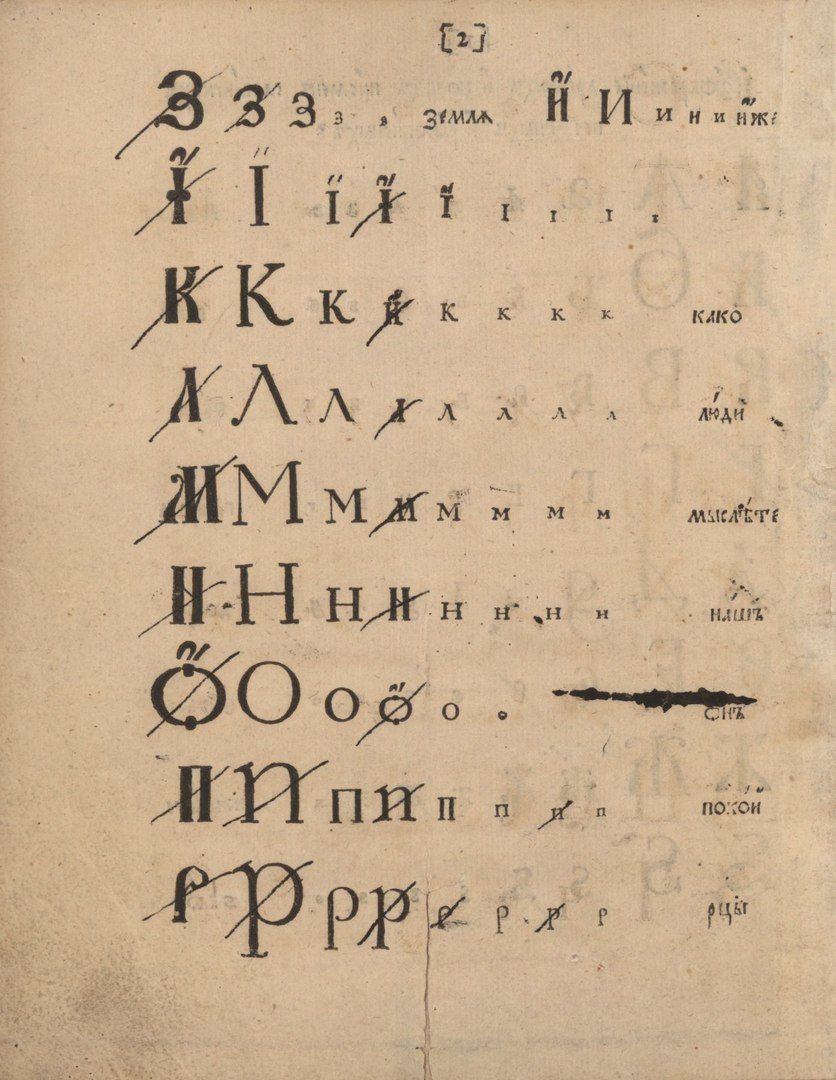 [2]
З З З з з землѧ И И и н и иже
Ї Ї ї Ї ї ı ı ı ı ı
К К к к к к к к како
Л Л л л л л л л люди
М М м м м м м м мыслѣте
Н Н н н н н н н нашъ
О О о о о о онъ
П П п п п п п п покой
Р Р р р р р р р рцы